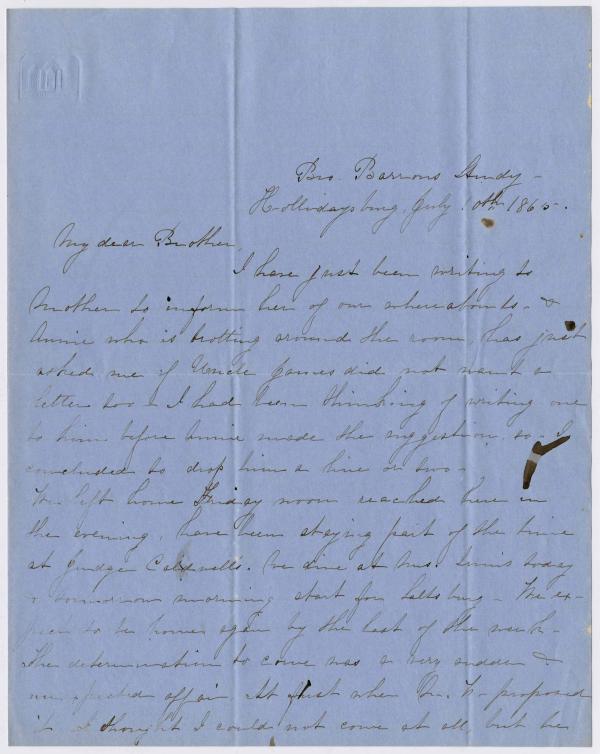 Bro. Barrons Study -
Hollidaysburg, July 10th 1865.
My dear Brother,
I have just been writing to
Mother to inform her of our whereabouts - &
Annie who is trotting around the room, has just
asked me if Uncle James did not want a
letter too - I had been thinking of writing one
to him before Annie made the suggestion, so - I
concluded to drop him a line or two -
We left home Friday noon reached here in
the evening, have been staying part of the time
at Judge Caldwells. We dine at Mrs. today
& tomorrow morning start for Saltsburg - We ex-
pect to be home again by the last of the week -
The determination to come was a very sudden &
unexpected affair. At first when proposed
it I thought I could not come at all, but he